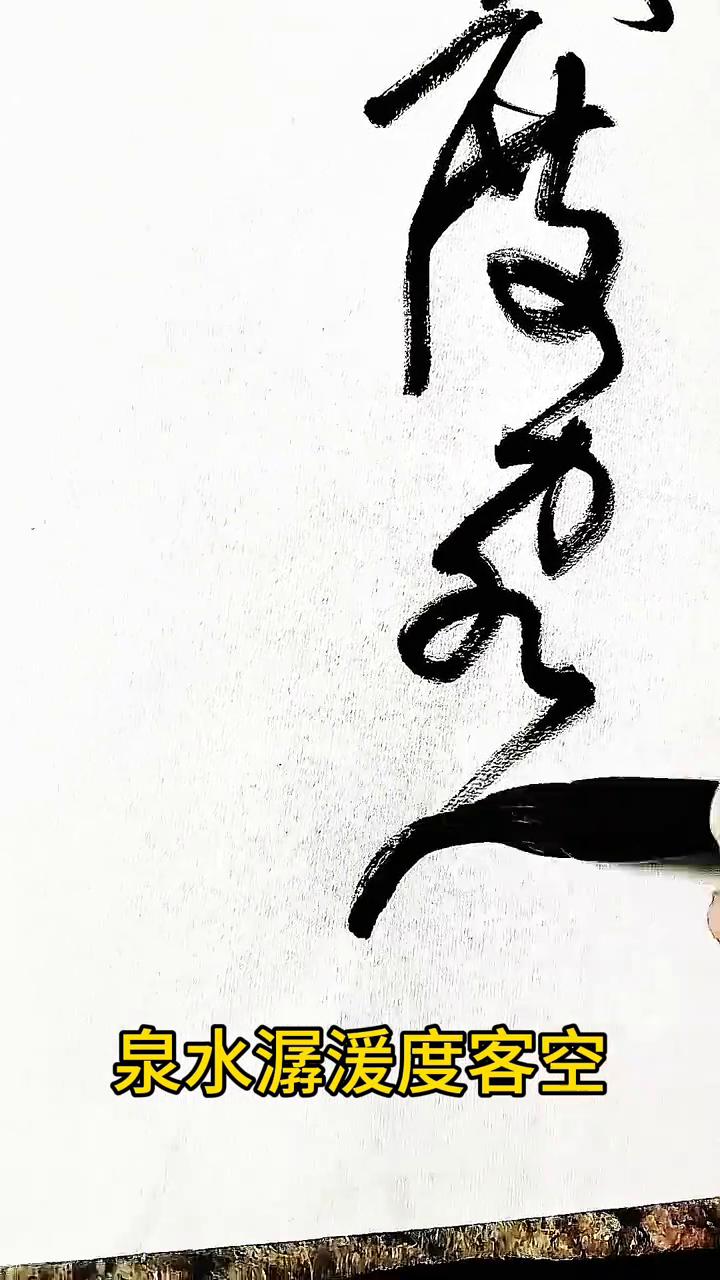 度客
泉水潺湲度客空